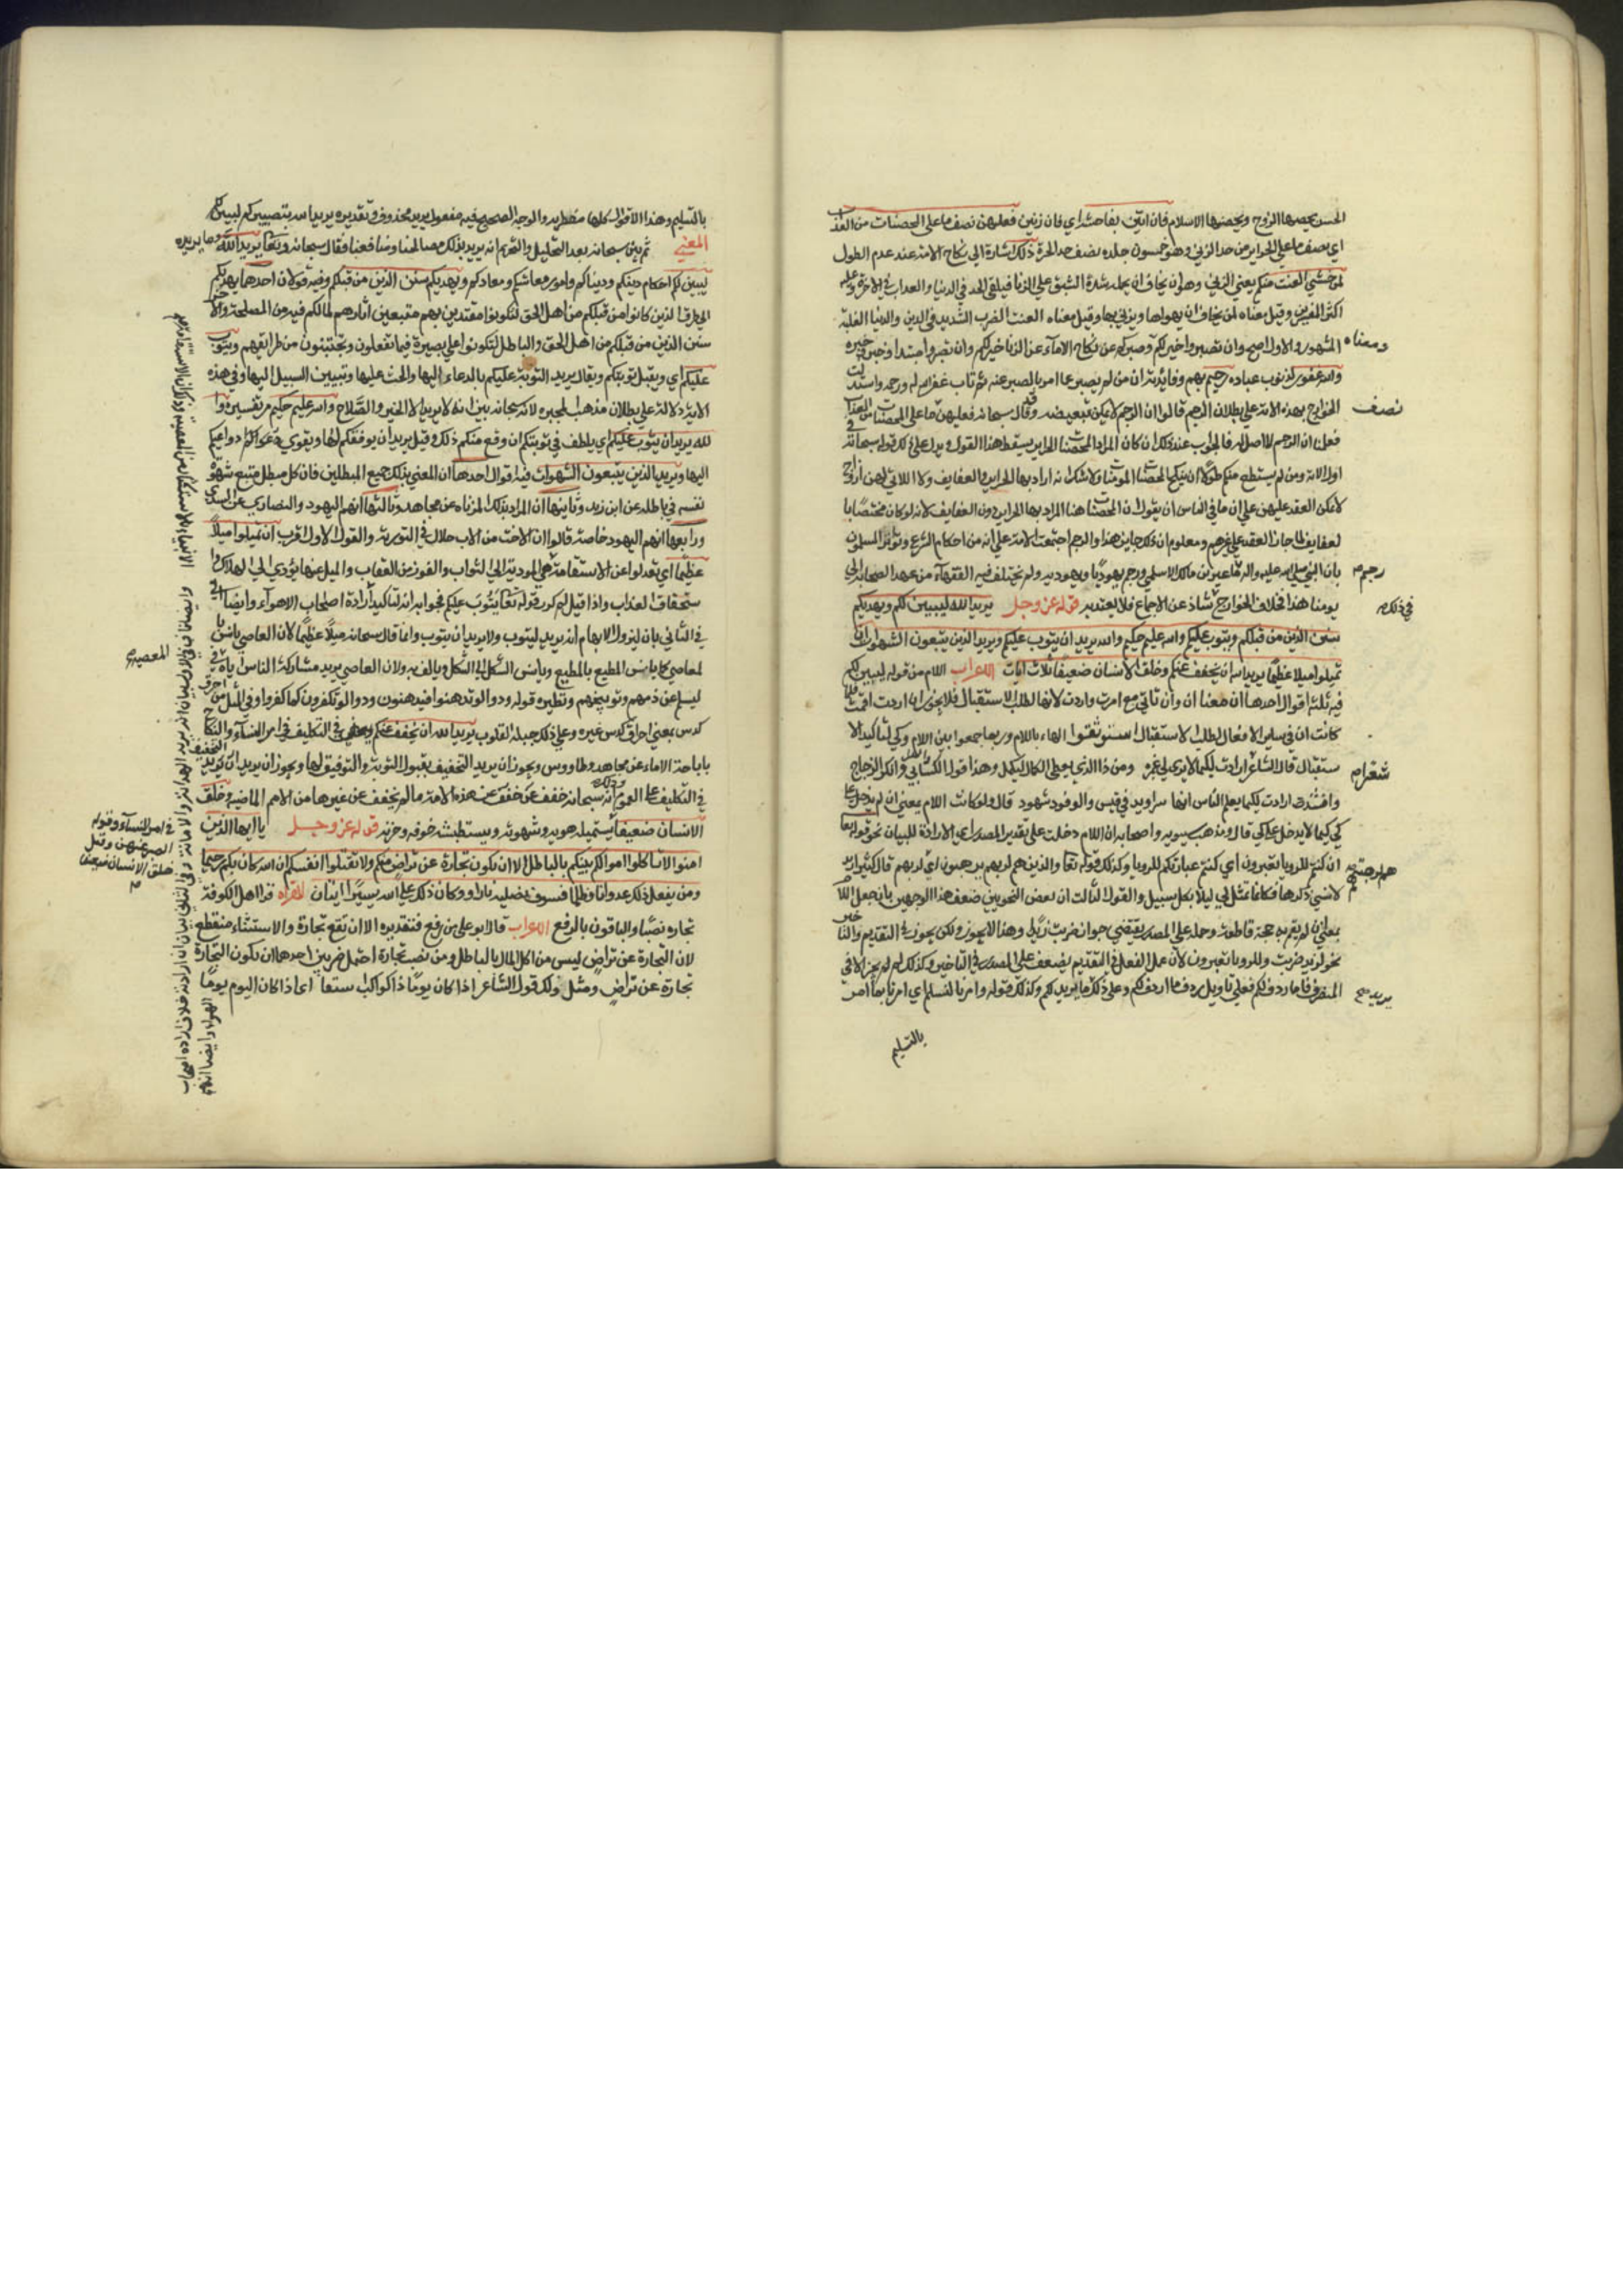 الحسن يحصنها الزوج ويحصنها الاسلام فان اتين بفاحشة اي فان زنين فعليهن نصف ما على المحصنات من العذاب
اي نصف ما علي الحراير من حد الزني وهو خمسون جلده نصف حد الحرة ذلك اشارة الي نكاح الامة عند عدم الطول
لمن خشي العنت منكم يعني الزني وهو ان يخاف ان يحمله شدة الشبق علي الزنا فيلقي الحد في الدنيا والعذاب في الاخرة وعليه
اكثر المفسرين وقيل معناه لمن يخاف ان يهواها ويزني بها وقيل معناه العنت الضرر الشديد في الدين والدنيا لغلبة
المشهور والاول اصح وان تصبروا خير لكم وصبركم عن نكاح الاماء عن الزنا خير لكم وان تصبروا مبتدا وخير خبره
ومعناه
والله غفور لذنوب عباده رحيم بهم وفايدته ان من لم يصبر عما امر بالصبر عنه ثم تاب غفر الله له ورحمه واستدلت
الخوارج بهذه الاية علي بطلان الرجم قالوا ان الرجم لا يمكن تبعيضه وقد قال سبحانه فعليهن ما على المحصنات من العذاب
نصف
فعلمنا ان الرجم لا اصل له فالجواب عن ذلك ان كان المراد المحصنات الحراير يسقط هذا القول ويدل علي ذلك قوله سبحانه في
اول الاية ومن لم يستطع منكم طولا ان ينكح المحصنات المومنات ولا شك انه اراد بها الحراير والعفايف ولا اللاتي لهن ازواج
لا يمكن العقد عليهن علي ان ما في الناس ان يقول ان المحصنات هنا المراد بها الحراير دون العفايف لانه لو كان مختصا با
لعفايف لما جاز العقد علي غيرهم ومعلوم ان ذلك جايز هذا والرجم اجتمعت الامة علي انه من احكام الشرع وتواتر المسلمون
بان النبي صلي الله عليه واله ماعز بن مالك الاسلمي ورجم يهوديا ويهوديه ولم يختلف فيه الفقهاء من عهد الصحابة الي
رجم
يومنا هذا فخلاف الخوارج شاذ عن الاجماع فلا يعتد به قوله عز وجل يريد الله ليبين لكم ويهديكم
في ذلك
سنن الذين من قبلكم ويتوب عليكم والله عليم حكيم والله يريد ان يتوب عليكم ويريد الذين يتبعون الشهوات ان
تميلوا ميلا عظيما يريد الله ان يخفف عنكم وخلق الانسان ضعيفا ثلاث ايات الاعراب اللام من قوله ليبين لكم
فيه ثلثة اقوال احدها ان معنا ان وان تاتي مع امرت واردت لانها لطلب الاستقبال فلا يجوز ان اردت ان قمت فلما
كانت ان في ساير الافعال لطلب الاستقبال استوثقوا لها باللام وربما جمعوا بين اللام وكي لتاكيد الا
ستقبال قال الشاعر اردت لكيما لا تري لي عثرة ومن ذا الذي يعطي الكمال فيكمل وهذا قول الكسائي وانكر الزجاج
شعرا
وانشد اردت لكيما يعلم الناس انها سراويل في قيس والوفود شهود قال ولو كانت اللام بمعني ان لم يدخل علي
كي كيما لا يدخل علي كي قال ومذهب سيبويه واصحابه ان اللام دخلت علي تقدير المصدر اي الارادة للبيان نحو قوله تعا
ان كنتم للرويا تعبرون اي كنتم عبارتكم للرويا وكذلك قوله تعا والذين هم لربهم يرهبون اي لربهم قال كثير اريد
هم رهبتهم
لانسي ذكرها فكانما تمثل لي ليلا بكل سبيل والقول الثالث ان بعض النحويين ضعف هذا الوجهين بان جعل اللام
بمعني ان لم تقم به حجة قاطعه وحمله علي المصدر يقتضي جواز ضربت لزيد وهذا لا يجوز ولكن يجوز في التقديم والتاخير
نحو لزيد ضربت وللرويا تعبرون لان عمل الفعل في التقديم يضعف كعمل المصدر في التاخير وكذلك لم يجز الا في
المتصرف فاما ردف لكم فعلي تاويل ردف ما ردف لكم وعلي ذلك ما يريد لكم وكذلك قوله وامرنا لنسلم اي امرنا بما امر
يريد
بالتسليم
بالتسليم وهذا الاقوال كلها مضطربه والوجه الصحيح فيه مفعول يريد محذوف وتقديره يريد الله تبصيركم ليبين لكم
المعني ثم بين سبحانه بعد التحليل والتحريم انه يريد بذلك مصالحنا ومنافعنا فقال سبحانه وتعا يريد الله ما يريده
ليبين لكم احكام دينكم ودنياكم وامور معاشكم ومعادكم ويهديكم سنن الذين من قبلكم وفيه قولان احدهما يهديكم
الي طرق الذين كانوا من قبلكم من اهل الحق لتكونوا مقتدين بهم متبعين اثارهم لما لكم فيه من المصلحة والاخر
سنن الذين من قبلكم من اهل الحق والباطل لتكونوا علي بصيرة فيما تفعلون وتجتنبون من طرايقهم ويتوب
عليكم اي ويقبل توبتكم ويقال يريد التوبة عليكم بالدعاء اليها والحث عليها وتبيين السبيل اليها وفي هذه
الاية دلالة علي بطلان مذهب المجبره لانه سبحانه بين انه لا يريد الا الخير والصلاح والله عليم حكيم مر تفسيره وا
لله يريد ان يتوب عليكم اي يلطف في توبتكم ان وقع منكم ذلك وقيل يريد ان يوفقكم لها ويقوي دواعيكم
اليها ويريد الذين يتبعون الشهوات فيه اقوال احدها ان المعني بذلك جميع المبطلين فان كل مبطل متبع شهوة
نفسه في باطله عن ابن زيد وثانيها ان المراد بذلك الزناه عن مجاهد وثالثها انهم اليهود والنصاري عن السدي
ورابعها انهم اليهود خاصة قالوا ان الاخت من الاب حلال في التورية والقول الاول اقرب ان تميلوا ميلا
عظيما اي تعدلوا عن الاستقامة المودية الي الثواب والفوز من العقاب والميل عنها يؤدي الي الهلاك وا
ستحقاق العذاب واذا قيل لم كرر قوله تعا يتوب عليكم فجوابه انه لتاكيد ارادة اصحاب الاهواء وايضا
في الثاني بان ليزول الابهام انه يريد ليتوب ولا يريد ان يتوب وانما قال سبحانه ميلا عظيما لان العاصي يانس با
لمعاصي كما يانس المطيع بالمطيع ويانس الشكل الي الشكل ويالف به ولان العاصي يريد مشاركة الناس اياه في
المعصية
ليسلم عن ذمهم وتوبيخهم ونظيره قوله ودوا لو تدهن فيدهنون ودوا لو تكفرون كما كفروا وفي المثل من احرق
كدس يعني احراق كدس غيره وعلي ذلك جبلة القلوب يريد الله ان يخفف عنكم في التكليف في امر النساء والنكاح
باباحة الاماء عن مجاهد وطاووس ويجوز ان يريد التخفيف بقبول التوبة والتوفيق لها ويجوز ان يريد التخفيف
في التكليف علي العموم وذلك انه سبحانه خفف عن هذه الامة ما لم يخفف عن غيرها من الامم الماضيه وخلق
الانسان ضعيفا يستميله هويه وشهوته ويستطيشه خوفه وحزنه قوله عز وجل يا ايها الذين
في امر النساء وقوله
الصبر عنهن وقيل
خلق الانسان ضعيفا
امنوا لا تاكلوا اموالكم بينكم بالباطل الا ان تكون تجارة عن تراض منكم ولا تقتلوا انفسكم ان الله كان بكم رحيما
ومن يفعل ذلك عدوانا وظلما فسوف نصليه نارا وكان ذلك علي الله يسيرا ايتان القراه قرا اهل الكوفة
تجاره نصبا والباقون بالرفع الاعراب قال ابو علي من رفع فتقديره الا ان تقع تجارة والاستثناء منقطع
لان التجارة عن تراض ليس من اكل المال بالباطل ومن نصب تجارة احتمل ضربين احدهما ان تكون التجارة
تجارة عن تراض ومثل ذلك قول الشاعر اذا كان يوما ذا كواكب سنعا اي اذا كان اليوم يوما